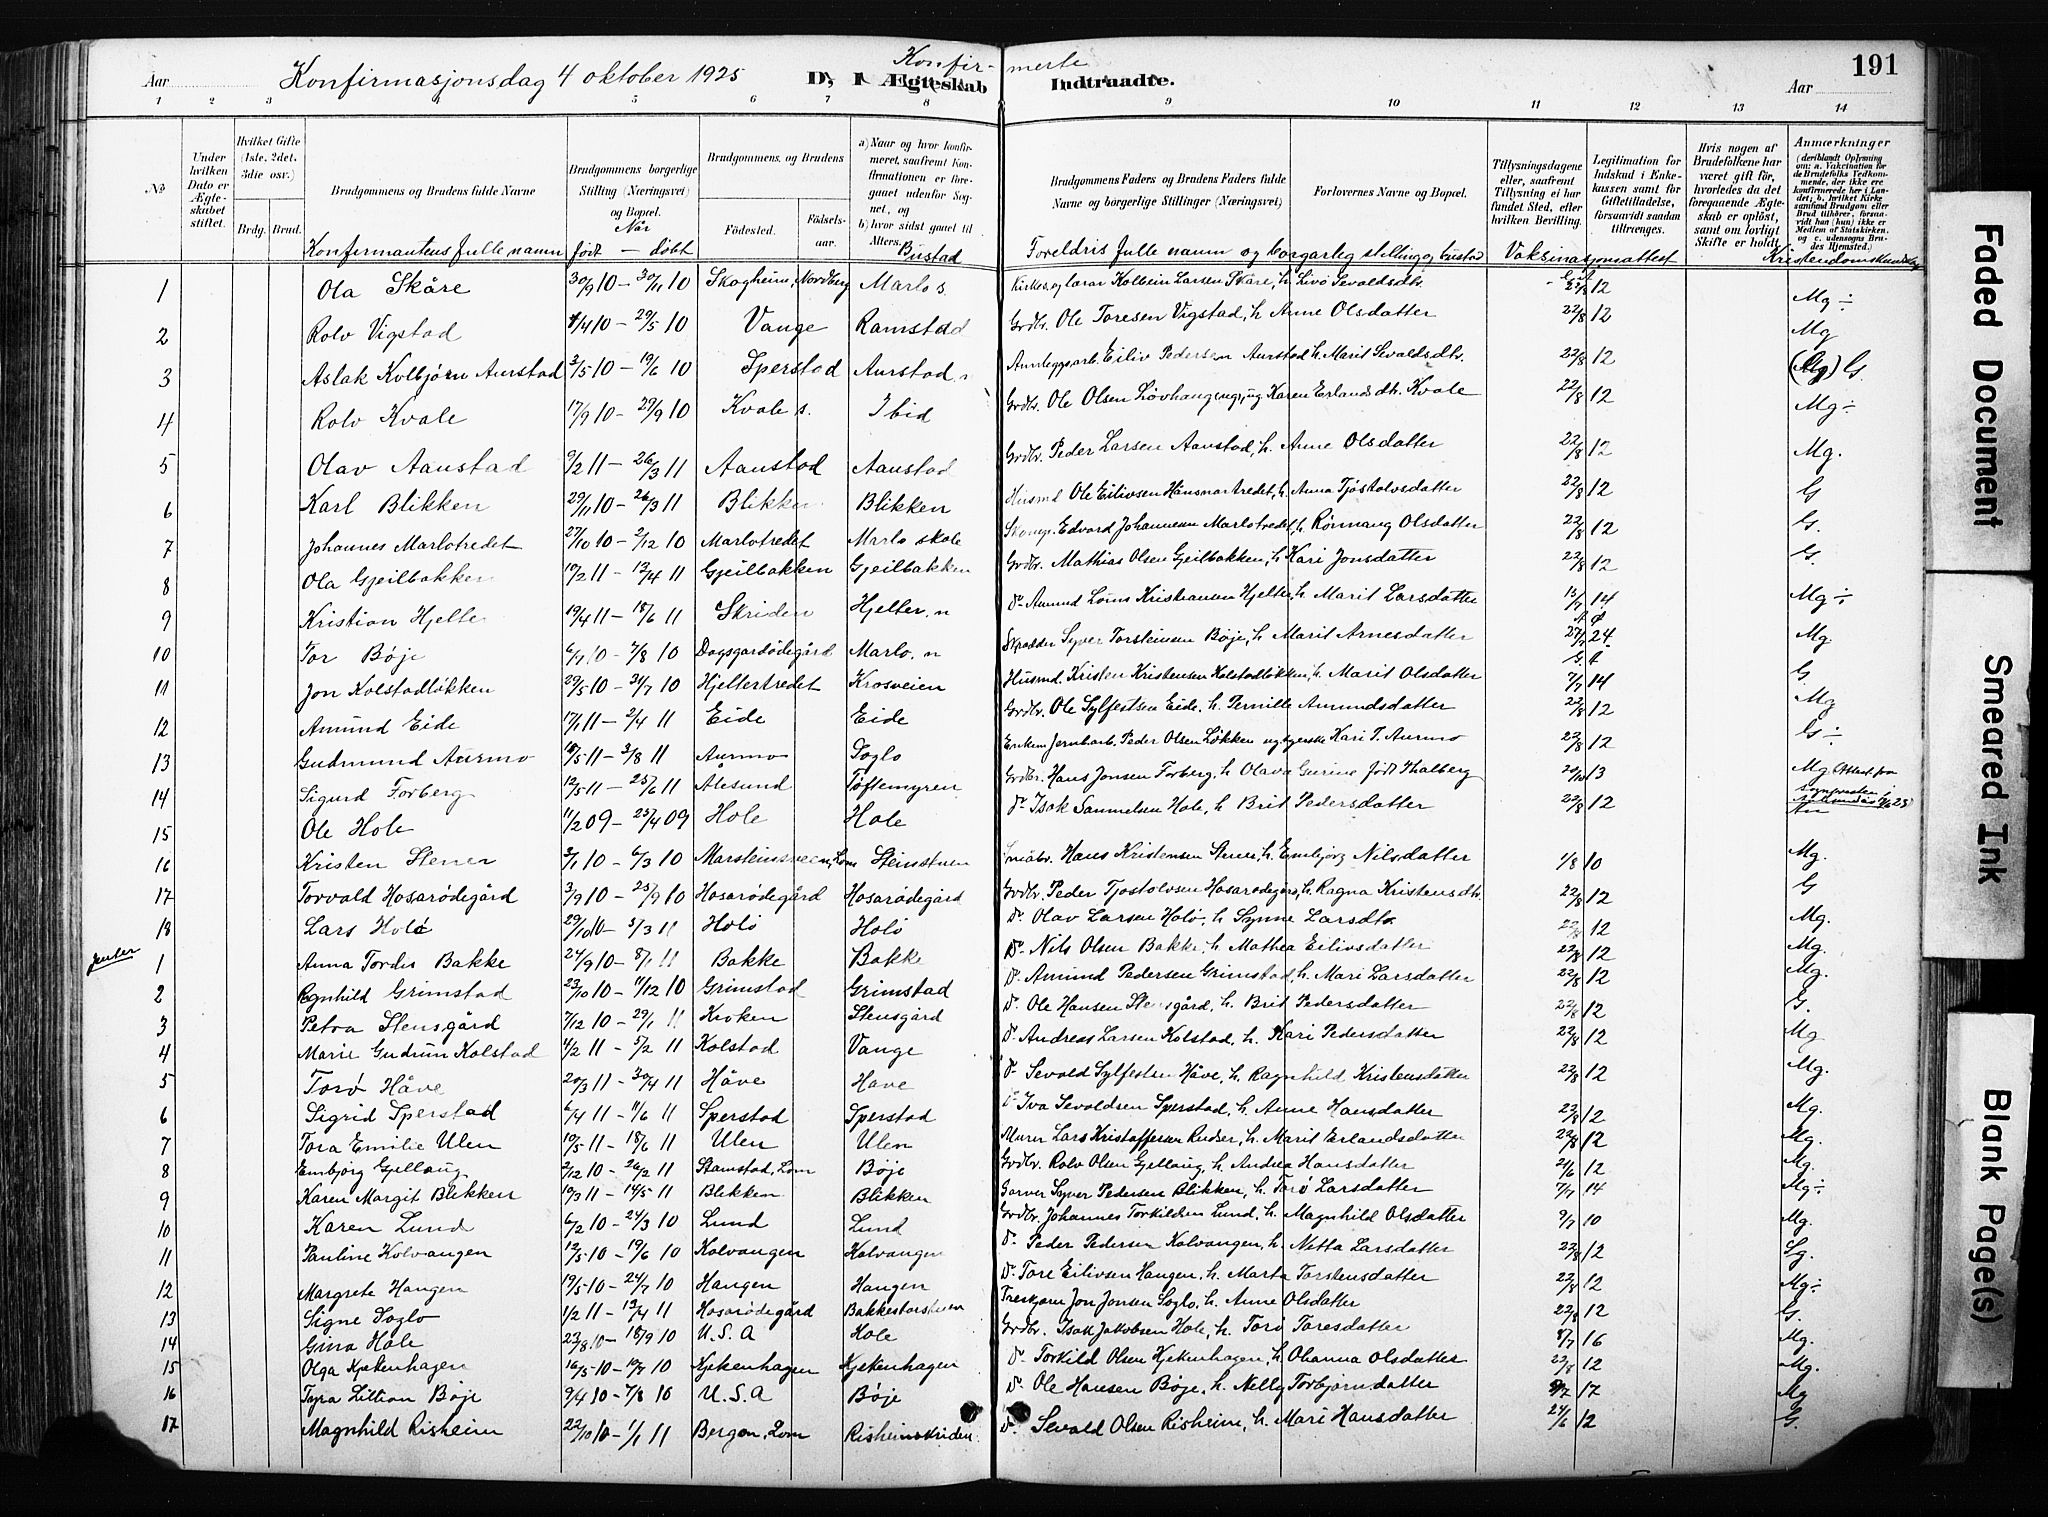 191
Aar Konfirmasjonsdag 4 oktober 1925 D, 1 Ægteskab Konfir- merte Indtraadte. Aar
1 2 3 4 5 6 7 8 9 10 11 12 13 14
No
Under hvilken Dato er Ægteskabet stiftet.
Hvilket Gifte (1ste, 2det, 3die osv.)
Brdg. Brud.
Brudgommens og Brudens fulde Navne
Brudgommens borgerlige Stilling (Næringsvei) og Bopæl.
Brudgommens og Brudens
Födested. Födsels-aar.
a) Naar og hvor konfirmeret, saafremt Konfirmationen er foregaaet udenfor Sognet, og
b) hvor sidst gaaet til Alters.
Brudgommens Faders og Brudens Faders fulde Navne og borgerlige Stillinger (Næringsvei)
Forlovernes Navne og Bopæl.
Tillysningsdagene eller, saafremt Tillysning ei har fundet Sted, efter hvilken Bevilling.
Legitimation for Indskud i Enkekassen samt for Giftetilladelse, forsaavidt saadan tiltrænges.
Hvis nogen af Brudefolkene har været gift før, hvorledes da det foregaaende Ægteskab er oplöst, samt om lovligt Skifte er holdt.
Anmærkninger
(deriblandt Oplysning om: a. Vakcination for de Brudefolks Vedkommende, der ikke ere konfirmerede her i Landet; b. hvilket Kirkesamfund Brudgom eller Brud tilhører, forsaavidt han (hun) ikke er Medlem af Statskirken, og c. udensogns Brudes Hjemsted.)
Konfirmantens fulle namn Når født — døbt Bustad Foreldris fulle namn og borgarleg stilling og bustad Vaksinasjonsattest Kristendomskundskap
1 Ola Skåre 30/9 10 — 30/11 10 Skogheim, Nordberg Marlo s. Kirkes. og lærar Kolbein Larsen Skåre, h. Livø Sevaldsdtr. 22/8 12 Mg ÷
2 Rolv Vigstad 1/4 10 — 29/5 10 Vange Ramstad Grdbr. Ole Toresen Vigstad, h. Anne Olsdatter 22/8 12 Mg
3 Aslak Kolbjørn Aurstad 3/5 10 — 19/6 10 Sperstad Aurstad n Anleggsarb. Eiliv Pedersen Aurstad h. Marit Sevaldsdtr. 22/8 12 (Mg) G.
4 Rolv Kvale 17/9 10 — 29/9 10 Kvale s. Ibid Grdbr. Ole Olsen Løvhaugen, og Karen Erlandsdtr. Kvale 22/8 12 Mg ÷
5 Olav Aanstad 9/2 11 — 26/3 11 Aanstad Aanstad Grdbr. Peder Larsen Aanstad, h. Anne Olsdatter 22/8 12 Mg.
6 Karl Blikken 29/11 10 — 26/3 11 Blikken Blikken Husmd Ole Eilivsen Hånsnartredet, h. Anna Tjøstolvsdatter 22/8 12 G
7 Johannes Marlotredet 27/10 10 — 2/12 10 Marlotredet Marlo skole Skomp. Edvard Johannesen Marlotredet, h. Rønnaug Olsdatter 22/8 12 G.
8 Ola Gjeilbakken 10/2 11 — 17/4 11 Gjeilbakken Gjeilbakken Grdbr. Mathias Olsen Gjeilbakken, h. Kari Jonsdatter 22/8 12 G.
9 Kristian Hjelte 19/4 11 — 18/6 11 Skriden Hjelter. n Do Amund Loms Kristiansen Hjelter, h. Marit Larsdatter 13/7 14 Mg ÷
10 Tor Bøje 6/7 10 — 7/8 10 Dagsgardødegård Marlo. n Skrædder Syver Torsteinsen Bøje, h. Marit Arnesdatter 27/3 24 Mg
11 Jon Kolstadløkken 29/5 10 — 31/7 10 Hjeltertredet Krosveien Husmd. Kristen Kristensen Kolstadløkken, h. Marit Olsdatter 7/7 14 G
12 Amund Eide 17/1 11 — 2/4 11 Eide Eide Grdbr. Ole Sylfestsen Eide, h. Pernille Amundsdatter 22/8 12 Mg
13 Gudmund Aurmo 10/5 11 — 3/8 11 Aurmo Soglo Enkem Jernbarb. Peder Olsen Løkken og tyerske Kari T. Aurmo 22/8 12 G ÷
14 Sigurd Forberg 12/5 11 — 25/6 11 Ålesund Toftemyren Grdbr. Hans Jonsen Forberg, h. Olava Gurine født Thalberg 20/10 13 Mg. Attest fra
15 Ole Hole 11/2 09 — 25/4 09 Hole Hole Do Isak Samuelsen Hole, h. Brit Pedersdatter 22/8 12
16 Kristen Stener 3/1 10 — 6/3 10 Marsteinsveen, Lom Steinstuen Småbr. Hans Kristensen Stene, h. Embjørg Nilsdatter 1/8 10 Mg.
17 Torvald Hosarødegård 3/9 10 — 25/9 10 Hosarødegård Hosarødegård Grdbr. Peder Tjøstolvsen Hosarødegård, h. Ragna Kristensdtr. 22/8 12 G
18 Lars Holø 29/10 10 — 5/3 11 Holø Holø Do. Olav Larsen Holø, h. Synne Larsdtr. 22/8 12 Mg.
Jenter
1 Anna Tordis Bakke 24/9 10 — 8/1 11 Bakke Bakke Do. Nils Olsen Bakke, h. Mathea Eilivsdatter 22/8 12 Mg.
2 Ragnhild Grimstad 23/10 10 — 11/12 10 Grimstad Grimstad Do. Amund Pedersen Grimstad, h. Mari Larsdatter 22/8 12 Mg.
3 Petra Stensgård 7/12 10 — 29/1 11 Kroken Stensgård Do. Ole Hansen Stensgård, h. Brit Pedersdatter 22/8 12 G.
4 Marie Gudrun Kolstad 4/2 11 — 5/2 11 Kolstad Vange Do. Andreas Larsen Kolstad, h. Kari Pedersdatter 22/8 12 Mg
5 Torø Håve 20/3 11 — 30/4 11 Håve Have Do Sevald Sylfesten Håve, h. Ragnhild Kristensdatter 22/8 12 Mg.
6 Sigrid Sperstad 6/4 11 — 11/6 11 Sperstad Sperstad Do Iva Sevaldsen Sperstad, h. Anne Hansdatter 22/8 12 Mg.
7 Tora Emilie Ulen 10/5 11 — 18/6 11 Ulen Ulen Murer Lars Kristoffersen Rudser, h. Marit Erlandsdatter 22/8 12 Mg.
8 Embjørg Gjellaug 2/12 10 — 26/2 11 Stamstad, Lom Bøje Grdbr. Rolv Olsen Gjellaug, h. Andrea Hansdatter 21/6 12 Mg.
9 Karen Margit Blikken 10/3 11 — 14/5 11 Blikken Blikken Garver Syver Pedersen Blikken, h. Torø Larsdatter 7/7 14 Mg ÷
10 Karen Lund 6/2 10 — 24/3 10 Lund Lund Grdbr. Johannes Torkildsen Lund, h. Magnhild Olsdatter 9/7 10 Mg.
11 Pauline Kolvangen 12/5 10 — 19/6 10 Kolvangen Kolvangen Do. Peder Pedersen Kolvangen, h. Netta Larsdatter 22/8 12 Sg.
12 Margrete Haugen 19/5 10 — 24/7 10 Haugen Haugen Do. Tore Eilivsen Haugen, h. Marta Torstensdatter 22/8 12 Mg ÷
13 Signe Soglo 1/2 11 — 17/4 11 Hosarødegård Bakkestorstuen Treskjærer Jon Jonsen Soglo, h. Anne Olsdatter 22/8 12 G.
14 Gina Hole 23/8 10 — 18/9 10 U.S.A Hole Grdbr. Isak Jakobsen Hole, h. Torø Toresdatter 8/7 16 Mg.
15 Olga Kjekenhagen 16/5 10 — 17/7 10 Kjekenhagen Kjekenhagen Do. Torkild Olsen Kjekenhagen, h. Ohanna Olsdatter 22/8 12 Mg.
16 Tyra Lillian Bøje 9/4 10 — 7/8 10 U.S.A Bøje Do. Ole Hansen Bøje, h. Nelly Torbjørnsdatter 9/7 17 Mg
17 Magnhild Risheim 22/10 10 — 1/1 11 Bergen, Lom Risheimskriden Do. Sevald Olsen Risheim, h. Mari Hansdatter 24/6 12 G.
Faded Document
Smeared Ink
Blank Page(s)